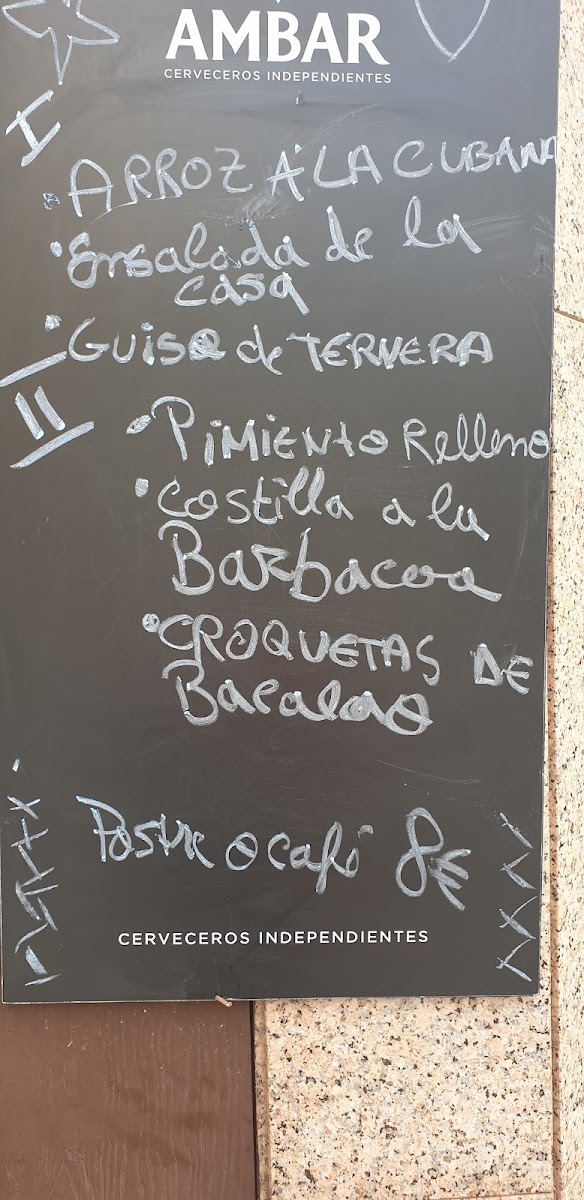 AMBAR
CERVECEROS INDEPENDIENTES
I
• ARROZ A LA CUBANA
• Ensalada de la
casa
• GUISO de TERNERA
II
• PIMIENTO Relleno
• costilla a la
Barbacoa
• CROQUETAS DE
Bacalao
Postre o café 8€
CERVECEROS INDEPENDIENTES